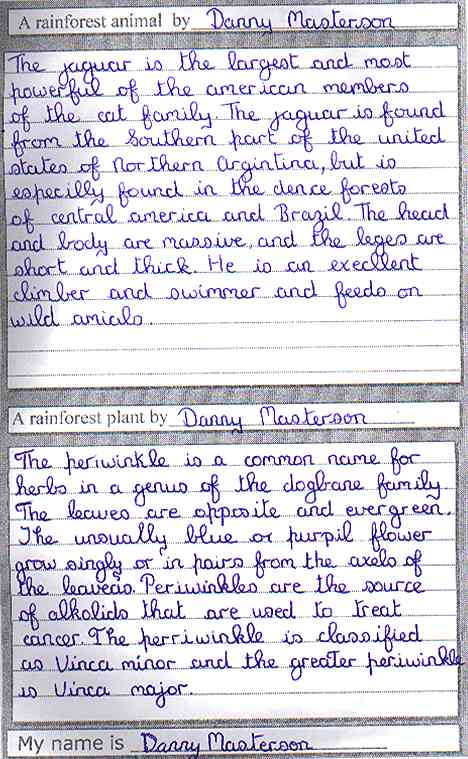 A rainforest animal by Danny Masterson
The jaguar is the largest and most
powerful of the american members
of the cat family. The jaguar is found
from the Southern part of the united
states of Northern Argintina, but is
especilly found in the dence forests
of central america and Brazil. The head
and body are massive, and the leges are
short and thick. He is an execllent
climber and swimmer and feeds on
wild amials.
A rainforest plant by Danny Masterson
The periwinkle is a common name for
herbs in a genus of the dogbane family
The leaves are opposite and evergreen.
The unsually blue or purpil flower
grow singly or in pairs from the axels of
the leaveas. Periwinkles are the source
of alkolids that are used to treat
cancer. The perriwinkle is classified
as Vinca minor and the greater periwinkle
is Vinca major.
My name is Danny Masterson